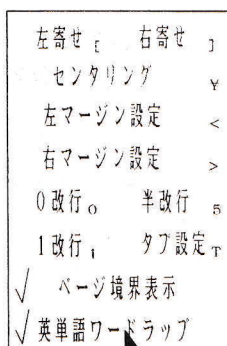 左寄せ [ 右寄せ ]
センタリング ¥
左マージン設定 <
右マージン設定 >
0改行 0 半改行 5
1改行 1 タブ設定 T
√ ページ境界表示
√ 英単語ワードラップ